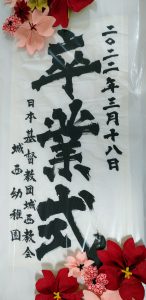 二〇二二年三月十八日
卒業式
日本基督教団城西教会
城西幼稚園